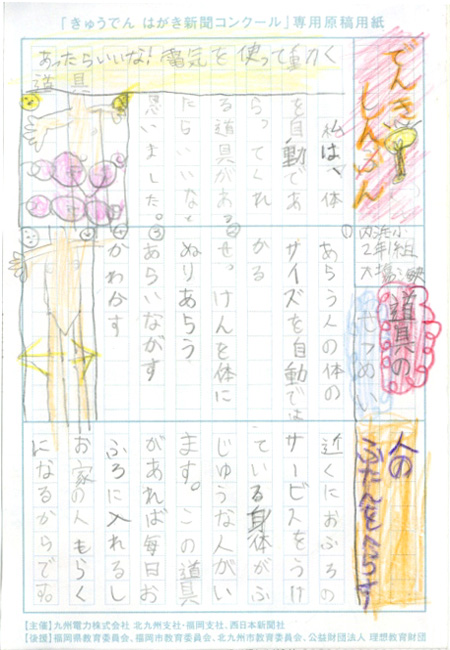 「きゅうでん はがき新聞コンクール」専用原稿用紙
でんき
しんぶん
内浜小
2年 組
あったらいいな!電気を使って動く
道具
私は、体
を自動であ
らってくれ
る道具があっ
たらいいなと
思いました。
道具の
せつめい
①あらう人の体の
サイズを自動では
かる
②せっけんを体に
ぬりあらう
③あらいながす
④かわかす
人の
ふたんをへらす
近くにおふろの
サービスをうけ
ている身体がふ
じゆうな人がい
ます。この道具
があれば毎日お
ふろに入れるし
お家の人もらく
になるからです。
【主催】九州電力株式会社 北九州支社・福岡支社、西日本新聞社
【後援】福岡県教育委員会、福岡市教育委員会、北九州市教育委員会、公益財団法人 理想教育財団